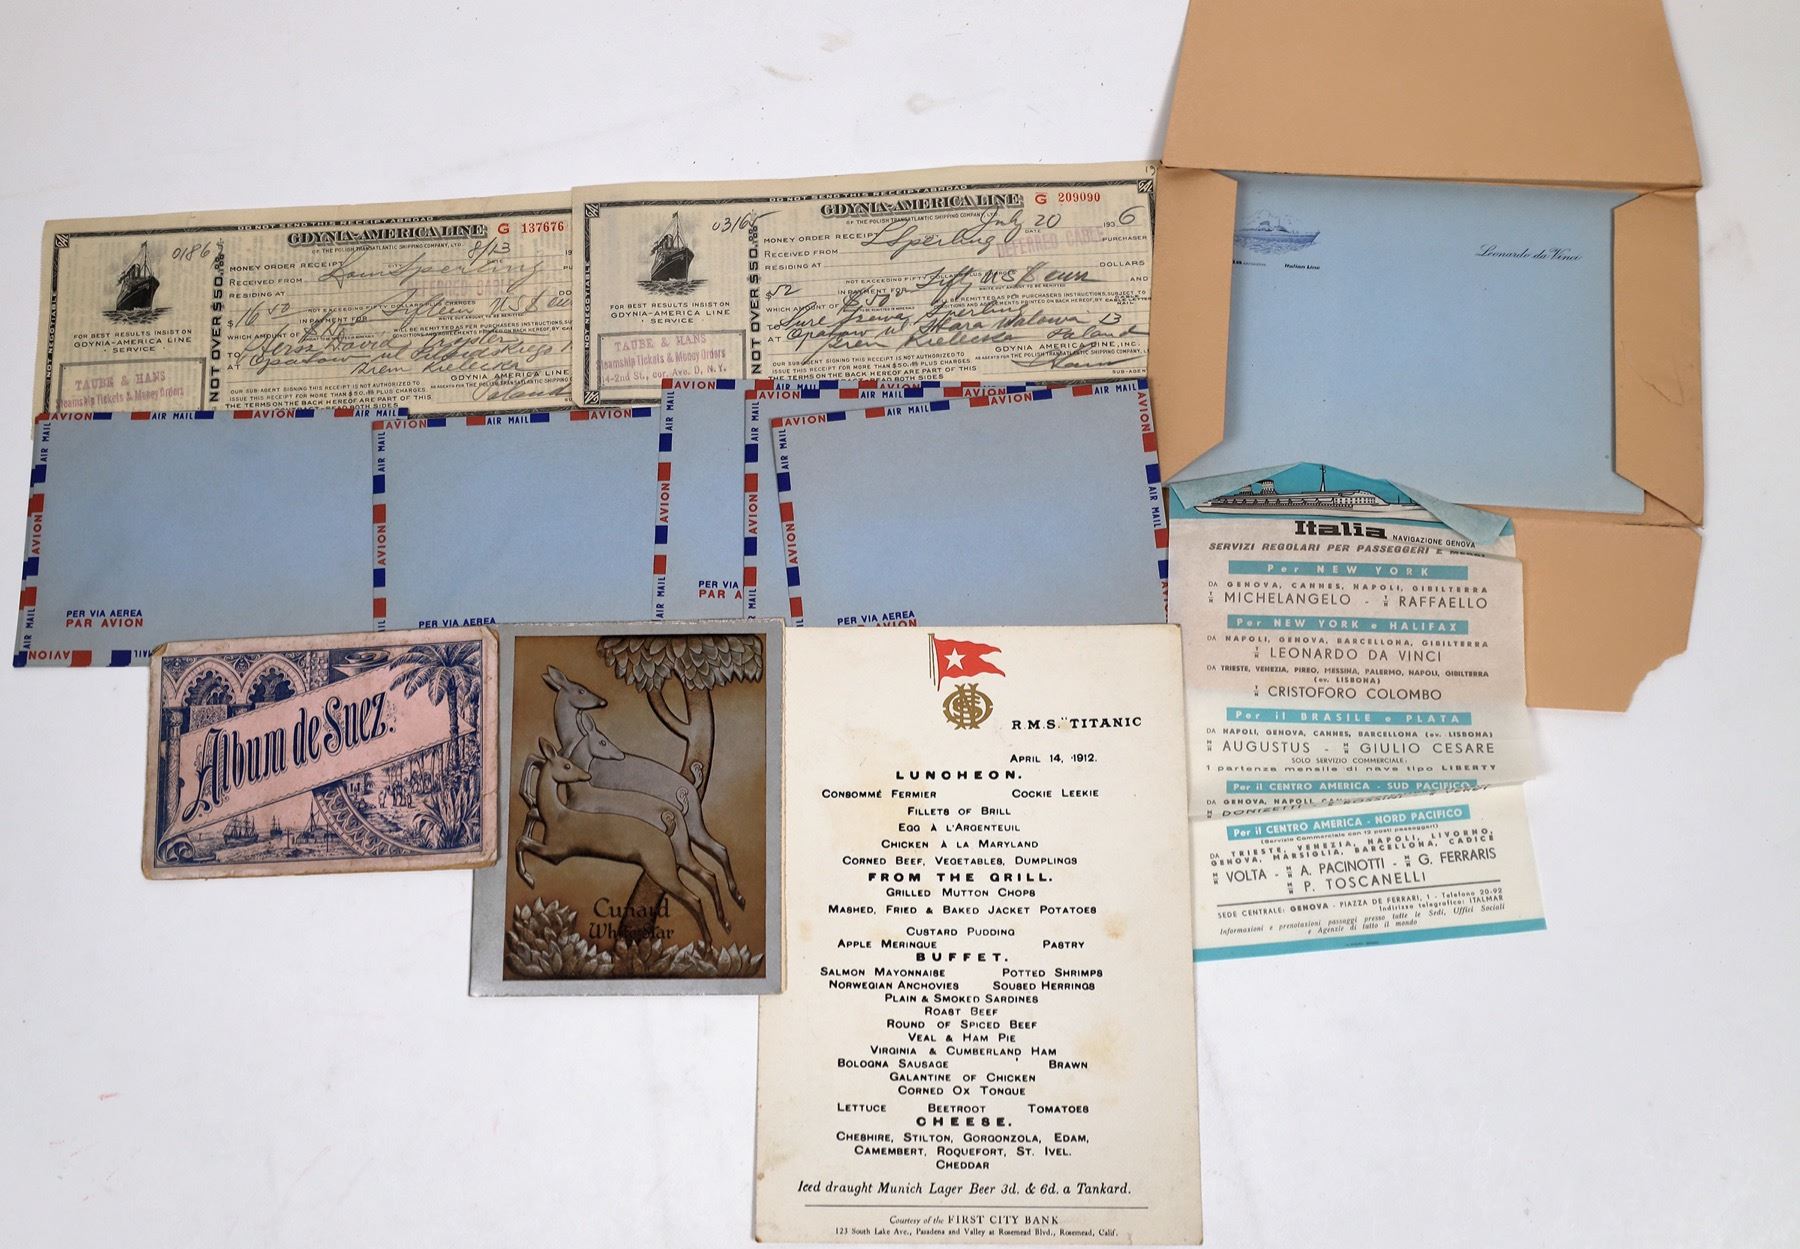 DO NOT SEND THIS RECEIPT ABROAD
GDYNIA-AMERICA LINE
G 137676
OF THE POLISH TRANSATLANTIC SHIPPING COMPANY, LTD.
0186
8/13
DATE
MONEY ORDER RECEIPT
RECEIVED FROM Sperling
RESIDING AT
NOT EXCEEDING FIFTY DOLLARS PLUS CHARGES
IN PAYMENT FOR Fifteen US
WHICH AMOUNT OF
WILL BE REMITTED AS PER PURCHASERS INSTRUCTIONS, SU
TO David
AT Opatow ul
NOT NEGOTIABLE
NOT OVER $50.00
FOR BEST RESULTS INSIST ON
GDYNIA-AMERICA LINE
· SERVICE ·
TAUBE & HANS
Steamship Tickets & Money Orders
OUR SUB-AGENT SIGNING THIS RECEIPT IS NOT AUTHORIZED TO
ISSUE THIS RECEIPT FOR MORE THAN $50.00 PLUS CHARGES
THE TERMS ON THE BACK HEREOF ARE PART OF THIS
GDYNIA AMERICA LINE
DO NOT SEND THIS RECEIPT ABROAD
GDYNIA-AMERICA LINE
G 209090
OF THE POLISH TRANSATLANTIC SHIPPING COMPANY, LTD.
July 20 1936
DATE
MONEY ORDER RECEIPT
DEFERRED CABLE
PURCHASER
RECEIVED FROM L Sperling
RESIDING AT
DOLLARS
NOT EXCEEDING FIFTY DOLLARS PLUS CHARGES
$52
IN PAYMENT FOR Fifty US
AND
WHICH AMOUNT OF $50
WILL BE REMITTED AS PER PURCHASERS INSTRUCTIONS, SUBJECT TO
TO Sperling
AT Opatow ul Stara 13
Poland
NOT NEGOTIABLE
NOT OVER $50.00
FOR BEST RESULTS INSIST ON
GDYNIA-AMERICA LINE
· SERVICE ·
TAUBE & HANS
Steamship Tickets & Money Orders
14-2nd St., cor. Ave. D, N.Y.
GDYNIA AMERICA LINE, INC.
AS AGENTS FOR THE POLISH TRANSATLANTIC SHIPPING COMPANY, L
OUR SUB-AGENT SIGNING THIS RECEIPT IS NOT AUTHORIZED TO
ISSUE THIS RECEIPT FOR MORE THAN $50.00 PLUS CHARGES
SUB-AGENT
Italian Line
Leonardo da Vinci
AVION AIR MAIL AVION AIR MAIL AVION
PER VIA AEREA
PAR AVION
AIR MAIL AVION AIR MAIL AVION
PER VIA AEREA
PER VIA A
PAR A
PER VIA AEREA
PAR AVION
Italia NAVIGAZIONE GENOVA
SERVIZI REGOLARI PER PASSEGGERI E
Per NEW YORK
DA GENOVA, CANNES, NAPOLI, GIBILTERRA
T/N MICHELANGELO - T/N RAFFAELLO
Per NEW YORK e HALIFAX
DA NAPOLI, GENOVA, BARCELLONA, GIBILTERRA
T/N LEONARDO DA VINCI
DA TRIESTE, VENEZIA, PIREO, MESSINA, PALERMO, NAPOLI, GIBILTERRA
(ev. LISBONA)
T/N CRISTOFORO COLOMBO
Per il BRASILE e PLATA
DA NAPOLI, GENOVA, CANNES, BARCELLONA (ev. LISBONA)
M/N AUGUSTUS - M/N GIULIO CESARE
SOLO SERVIZIO COMMERCIALE:
1 partenza mensile di nave tipo LIBERTY
Per il CENTRO AMERICA - SUD PACIFICO
DA GENOVA, NAPOLI
Per il CENTRO AMERICA - NORD PACIFICO
(Servizio Commerciale con 12 posti passeggeri)
DA TRIESTE, VENEZIA, NAPOLI, LIVORNO,
GENOVA, MARSIGLIA, BARCELLONA, CADICE
M/N VOLTA - M/N A. PACINOTTI - M/N G. FERRARIS
M/N P. TOSCANELLI
SEDE CENTRALE: GENOVA - PIAZZA DE FERRARI, 1 - Telefono 20-92
Indirizzo telegrafico: ITALMAR
Informazioni e prenotazioni passaggi presso tutte le Sedi, Uffici Sociali
e Agenzie di tutto il mondo
Album de Suez.
Cunard
White Star
R.M.S. "TITANIC
APRIL 14, 1912.
LUNCHEON.
CONSOMMÉ FERMIER COCKIE LEEKIE
FILLETS OF BRILL
EGG À L'ARGENTEUIL
CHICKEN À LA MARYLAND
CORNED BEEF, VEGETABLES, DUMPLINGS
FROM THE GRILL.
GRILLED MUTTON CHOPS
MASHED, FRIED & BAKED JACKET POTATOES
CUSTARD PUDDING
APPLE MERINGUE PASTRY
BUFFET.
SALMON MAYONNAISE POTTED SHRIMPS
NORWEGIAN ANCHOVIES SOUSED HERRINGS
PLAIN & SMOKED SARDINES
ROAST BEEF
ROUND OF SPICED BEEF
VEAL & HAM PIE
VIRGINIA & CUMBERLAND HAM
BOLOGNA SAUSAGE BRAWN
GALANTINE OF CHICKEN
CORNED OX TONGUE
LETTUCE BEETROOT TOMATOES
CHEESE.
CHESHIRE, STILTON, GORGONZOLA, EDAM,
CAMEMBERT, ROQUEFORT, ST. IVEL.
CHEDDAR
Iced draught Munich Lager Beer 3d. & 6d. a Tankard.
Courtesy of the FIRST CITY BANK
123 South Lake Ave., Pasadena and Valley at Rosemead Blvd., Rosemead, Calif.